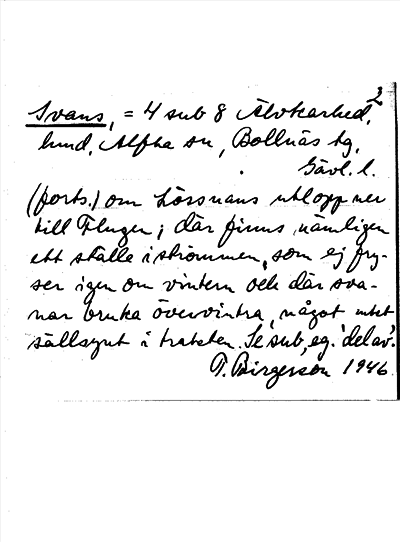 2
Svans, = 4 sub 8 Älvkarhed,
hmd, Alfta sn, Bollnäs tg,
Gävl. l.
(forts.) om Lössnans utlopp ner
till Flugen; där finns nämligen
ett ställe i strömmen, som ej fry-
ser igen om vintern och där sva-
nar bruka övervintra, något mkt
sällsynt i trakten. Se sub, eg. 'del av'.
T. Birgerson 1946